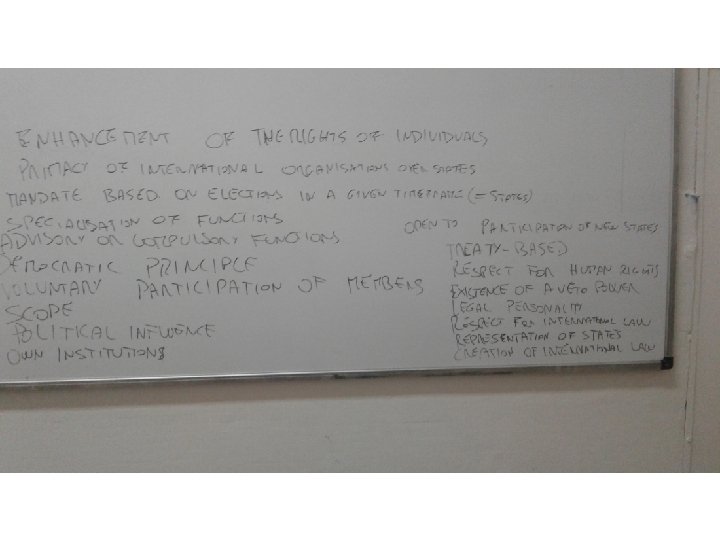 ENHANCEMENT OF THE RIGHTS OF INDIVIDUALS
PRIMACY OF INTERNATIONAL ORGANISATIONS OVER STATES
MANDATE BASED ON ELECTIONS IN A GIVEN TIMEFRAME (= STATES)
SPECIALISATION OF FUNCTIONS
ADVISORY OR COMPULSORY FUNCTIONS
DEMOCRATIC PRINCIPLE
VOLUNTARY PARTICIPATION OF MEMBERS
SCOPE
POLITICAL INFLUENCE
OWN INSTITUTIONS
OPEN TO PARTICIPATION OF NEW STATES
TREATY-BASED
RESPECT FOR HUMAN RIGHTS
EXISTENCE OF A VETO POWER
LEGAL PERSONALITY
RESPECT FOR INTERNATIONAL LAW
REPRESENTATION OF STATES
CREATION OF INTERNATIONAL LAW